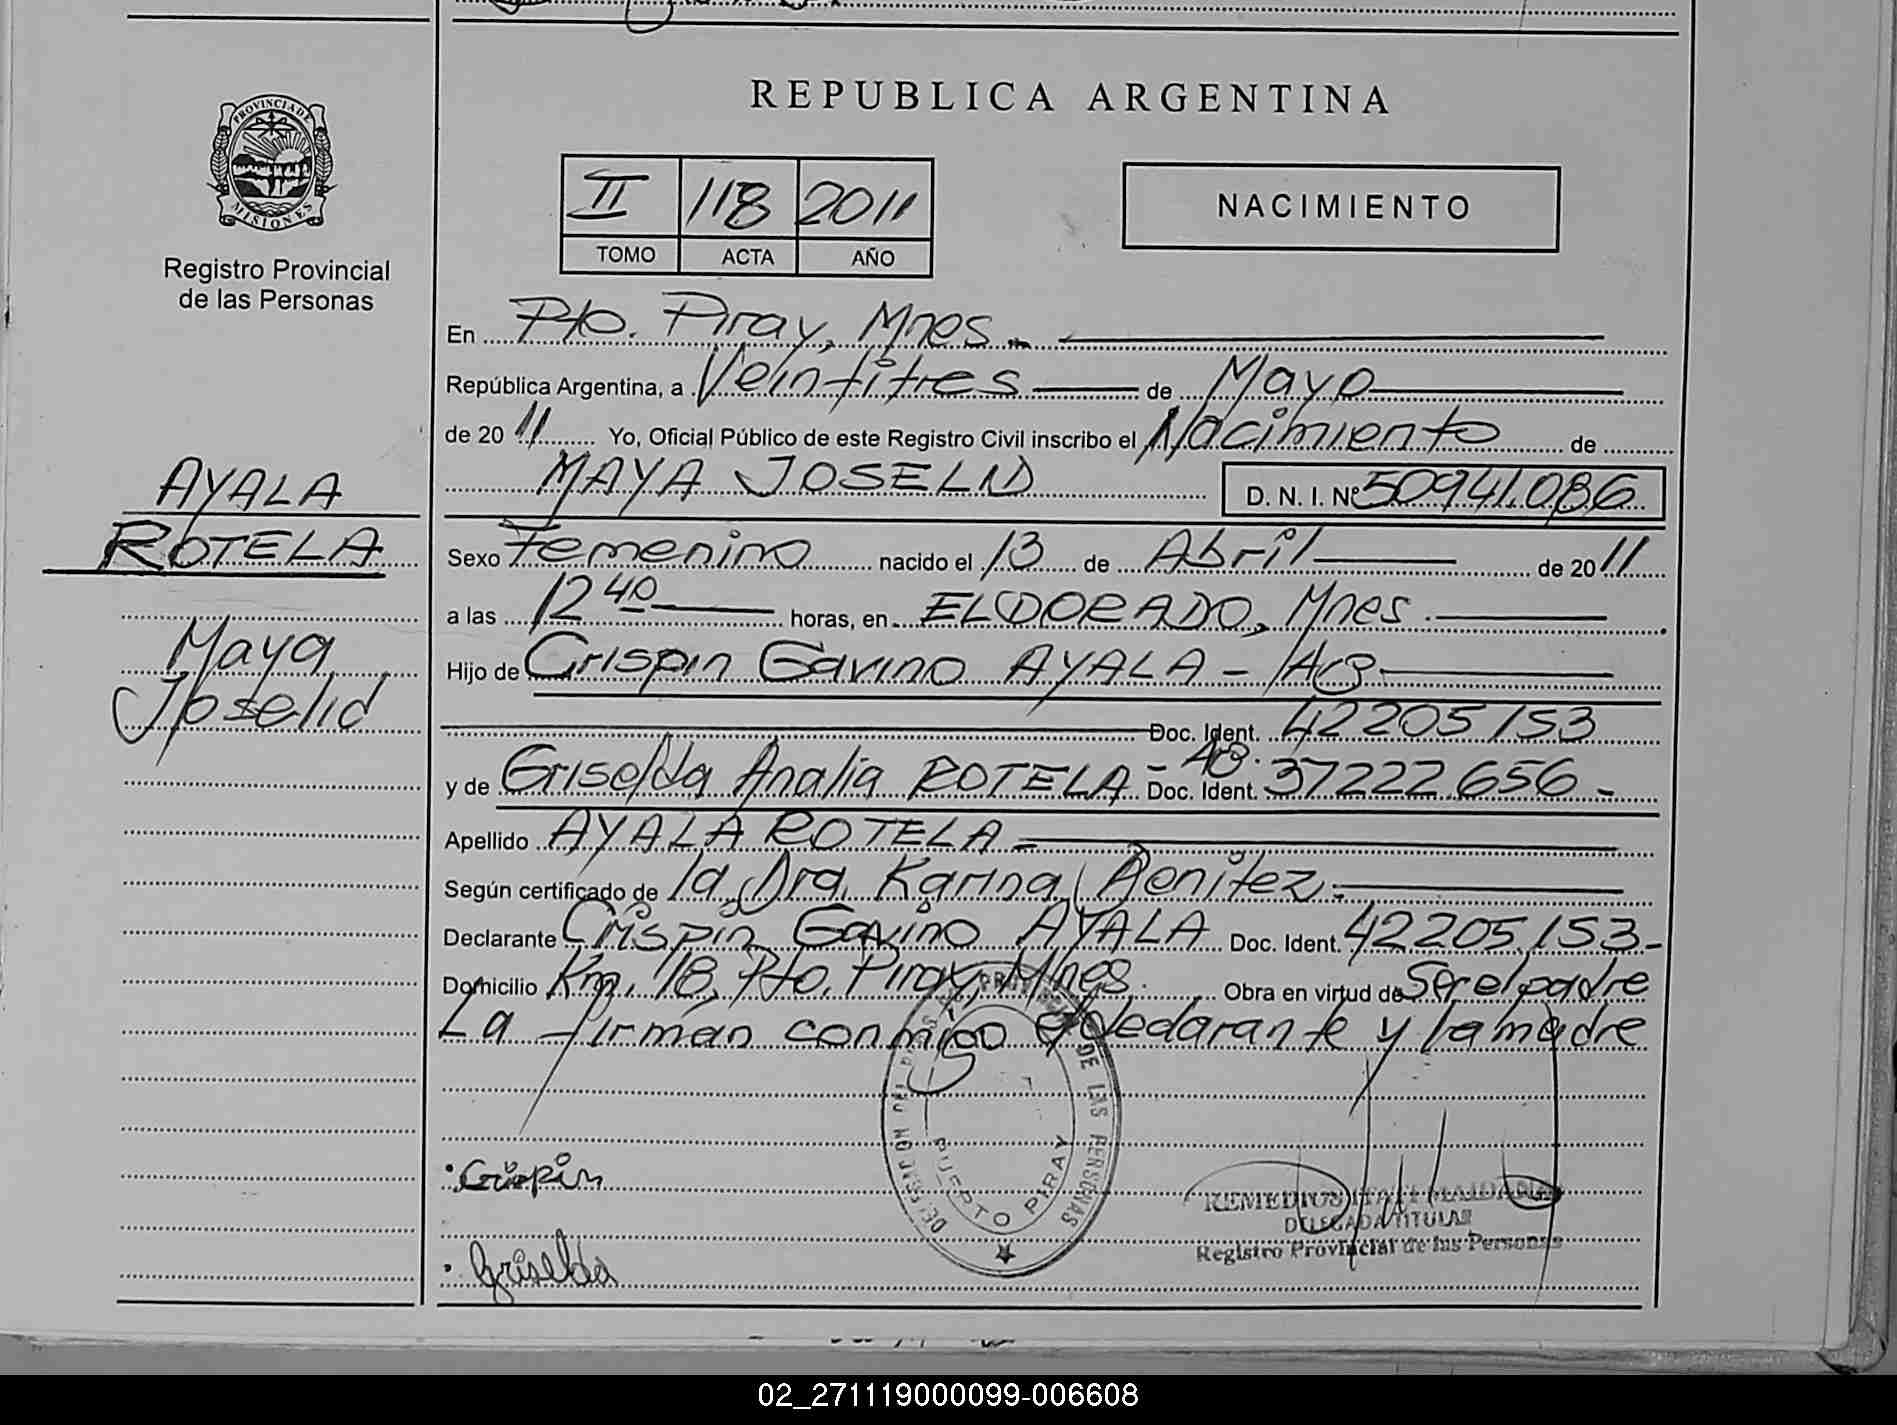 REPUBLICA ARGENTINA
PROVINCIA DE
MISIONES
Registro Provincial
de las Personas
II 118 2011
TOMO ACTA AÑO
NACIMIENTO
En Pto. Piray, Mnes.
República Argentina, a Veintitres de Mayo
de 2011 Yo, Oficial Público de este Registro Civil inscribo el Nacimiento de
MAYA JOSELID D. N. I. Nº 50941.086
AYALA
ROTELA
Maya
Joselid
Sexo Femenino nacido el 13 de Abril de 2011
a las 12 40 horas, en ELDORADO, Mnes.
Hijo de Crispin Gavino AYALA - Arg
Doc. Ident. 42205153
y de Griselda Analia ROTELA - Arg. Doc. Ident. 37222656 -
Apellido AYALA ROTELA -
Según certificado de la Dra. Karina Benitez.-
Declarante Crispin Gavino AYALA Doc. Ident. 42205.153-
Domicilio Km. 18, Pto. Piray, Mnes. Obra en virtud de Ser el padre
La firman conmigo el declarante y la madre
Crispin
Griselda
PUERTO PIRAY
DE LAS PERSONAS
REMEDIOS ITATI MAIDANA
DELEGADA TITULAR
Registro Provincial de las Personas
02_271119000099-006608